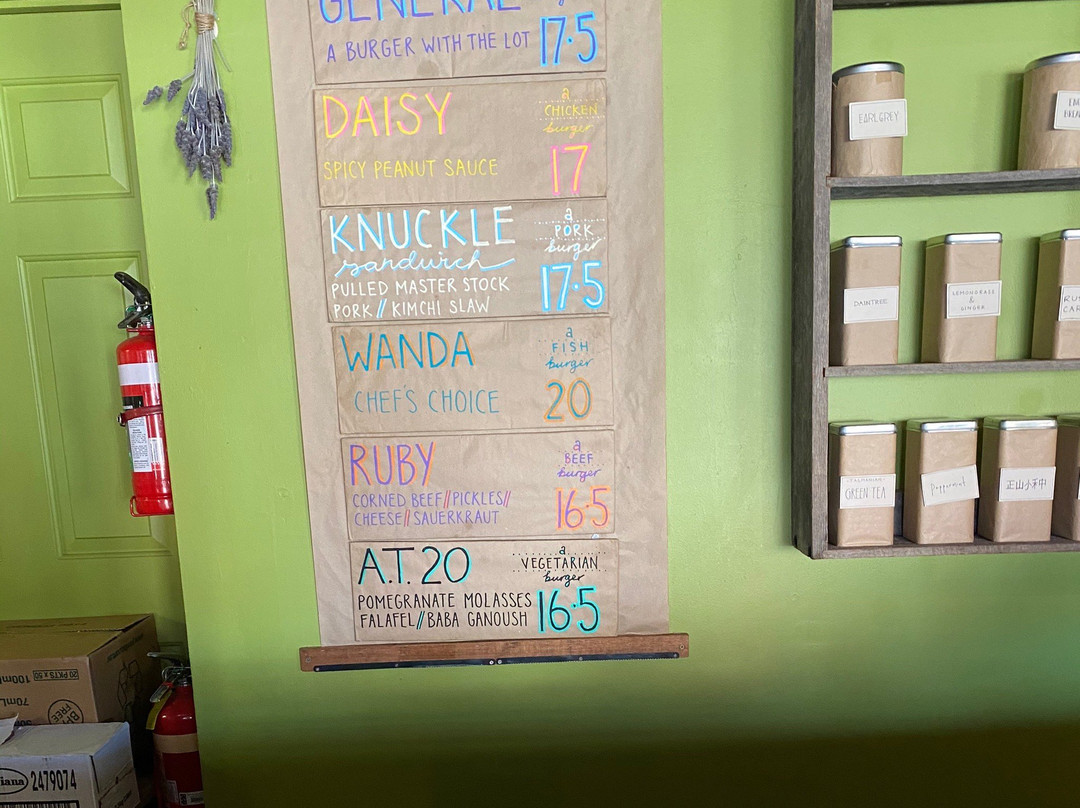 GENERAL
A BURGER WITH THE LOT
17.5
DAISY
a
CHICKEN
burger
SPICY PEANUT SAUCE
17
KNUCKLE
sandwich
a
PORK
burger
PULLED MASTER STOCK
PORK // KIMCHI SLAW
17.5
WANDA
a
FISH
burger
CHEF'S CHOICE
20
RUBY
a
BEEF
burger
CORNED BEEF//PICKLES//
CHEESE//SAUERKRAUT
16.5
A.T. 20
a
VEGETARIAN
burger
POMEGRANATE MOLASSES
FALAFEL//BABA GANOUSH
16.5
EARL GREY
DAINTREE
LEMONGRASS
&
GINGER
GREEN TEA
Peppermint
正山小种
20 PKTS x 50
100mL
70mL
FREE
2479074